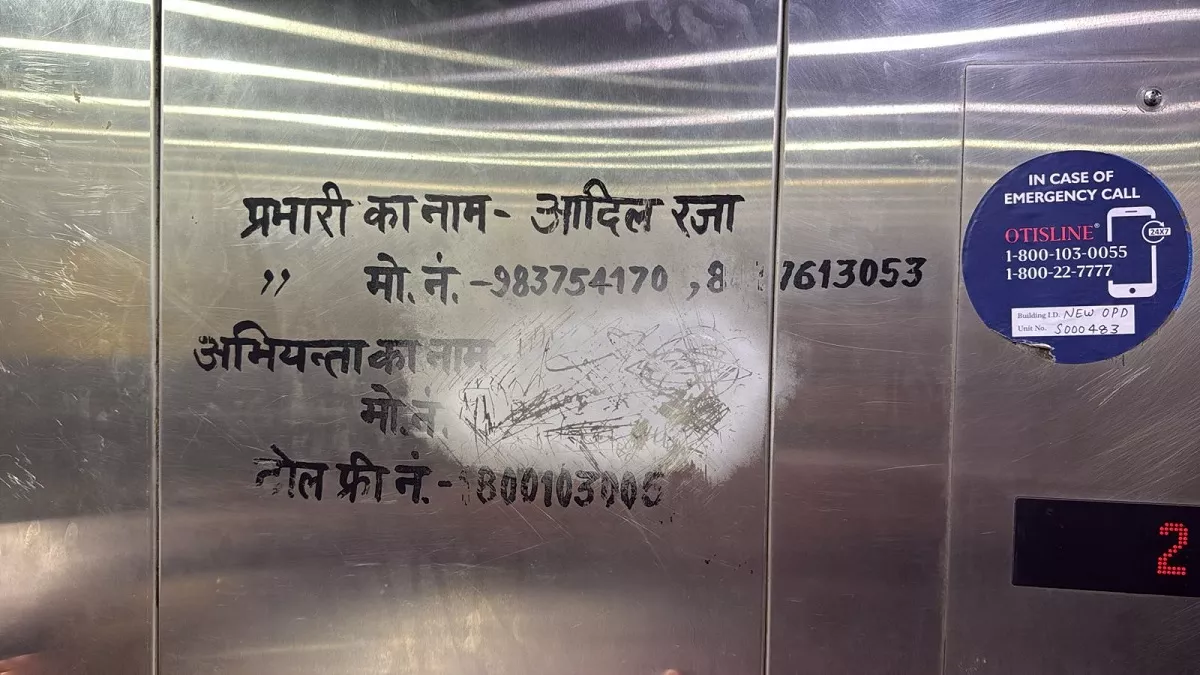 प्रभारी का नाम- आदिल रजा
” मो. नं. -983754170 , 7613053
अभियन्ता का नाम
मो. नं.
टोल फ्री नं. - 1800103005
IN CASE OF
EMERGENCY CALL
OTISLINE®
24X7
1-800-103-0055
1-800-22-7777
Building I.D. NEW OPD
Unit No. S000483
2